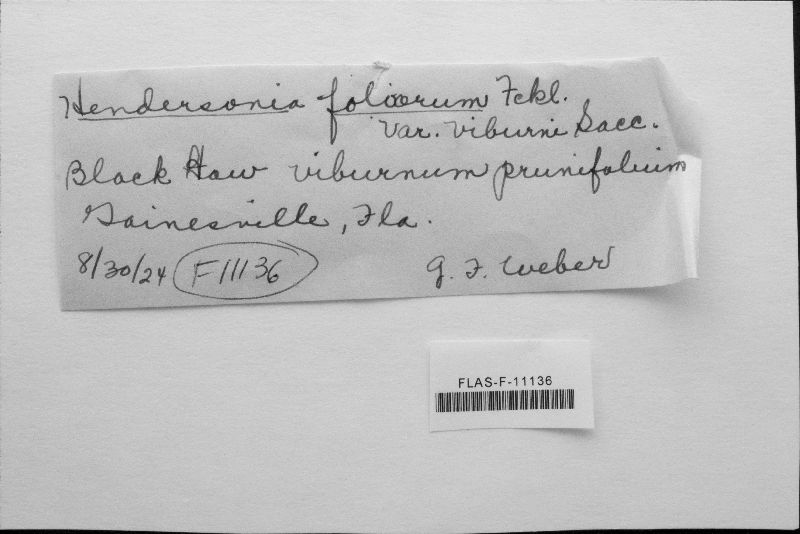 Hendersonia foliorum Fckl.
var. viburni Sacc.
Black Haw viburnum prunifolium
Gainesville, Fla.
8/30/24 F11136
G. F. Weber
FLAS-F-11136